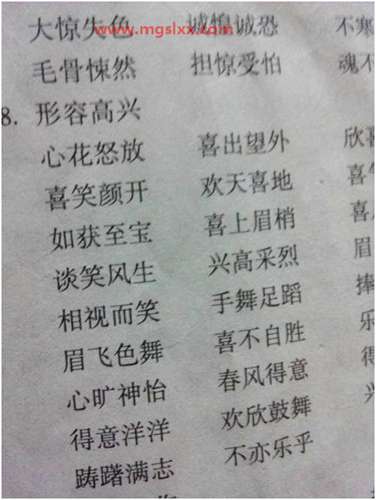 大惊失色 诚惶诚恐 不寒
www.mgslxx.com
毛骨悚然 担惊受怕 魂不
8. 形容高兴
心花怒放 喜出望外 欣喜
喜笑颜开 欢天喜地 喜
如获至宝 喜上眉梢 喜
谈笑风生 兴高采烈 眉
相视而笑 手舞足蹈 捧
眉飞色舞 喜不自胜 乐
心旷神怡 春风得意 得
得意洋洋 欢欣鼓舞
踌躇满志 不亦乐乎